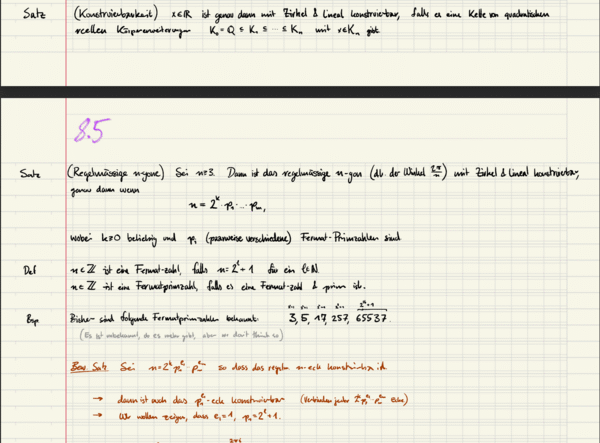 Satz (Konstruierbarkeit) x∈ℝ ist genau dann mit Zirkel & Lineal konstruierbar, falls es eine Kette von quadratischen
reellen Körpererweiterungen K₀ = Q ≤ K₁ ≤ ··· ≤ Kₙ mit x∈Kₙ gibt.
8.5
Satz (Regelmässige n-gone) Sei n≥3. Dann ist das regelmässige n-gon (dh. der Winkel 2π/n) mit Zirkel & Lineal konstruierbar,
genau dann wenn
n = 2ᵏ · p₁ · ... · pₘ,
wobei k≥0 beliebig und pᵢ (paarweise verschiedene) Fermat-Primzahlen sind.
Def n∈ℤ ist eine Fermat-zahl, falls n = 2ˡ + 1 für ein l∈ℕ.
n∈ℤ ist eine Fermatprimzahl, falls es eine Fermat-zahl & prim ist.
Bsp Bisher sind folgende Fermatprimzahlen bekannt: 3, 5, 17, 257, 65537.
(Es ist unbekannt, ob es mehr gibt, aber we don't think so)
Bew Satz. Sei so dass das regelm. n-eck konstruierbar ist.
→ dann ist auch das -eck konstruierbar (Verbinden jeder Ecke)
→ Wir wollen zeigen, dass e₁=1, p₁=2ˡ+1.